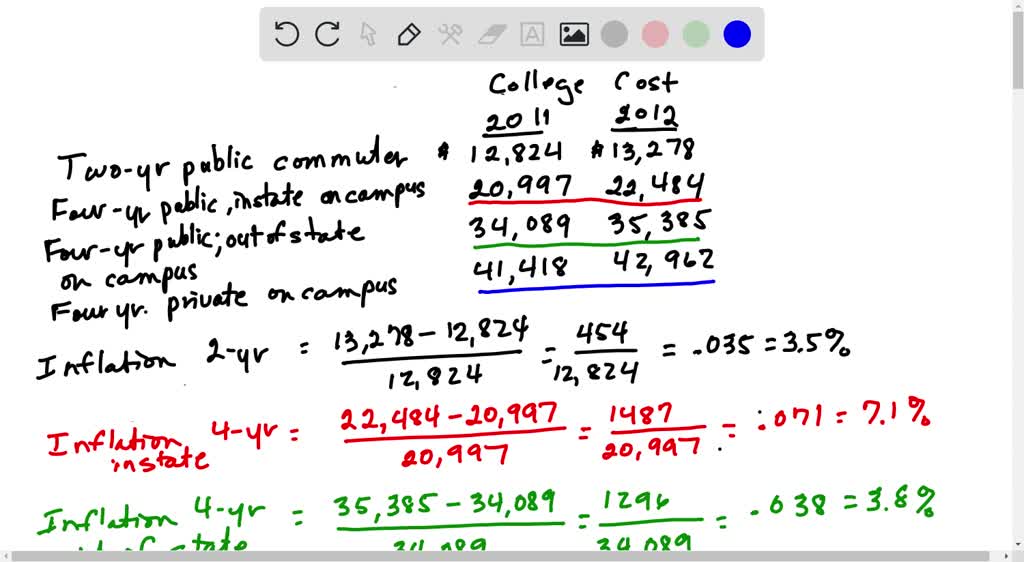 College Cost
2011 2012
Two-yr public commuter $12,824 $13,278
Four-yr public, instate on campus 20,997 22,484
Four-yr public; out of state 34,089 35,385
on campus
Four yr. private on campus 41,418 42,962
Inflation 2-yr = 13,278 - 12,824 / 12,824 = 454 / 12,824 = .035 = 3.5%
Inflation 4-yr = 22,484 - 20,997 / 20,997 = 1487 / 20,997 = .071 = 7.1%
instate
Inflation 4-yr = 35,385 - 34,089 / 34,089 = 1296 / 34,089 = .038 = 3.8%
out of state